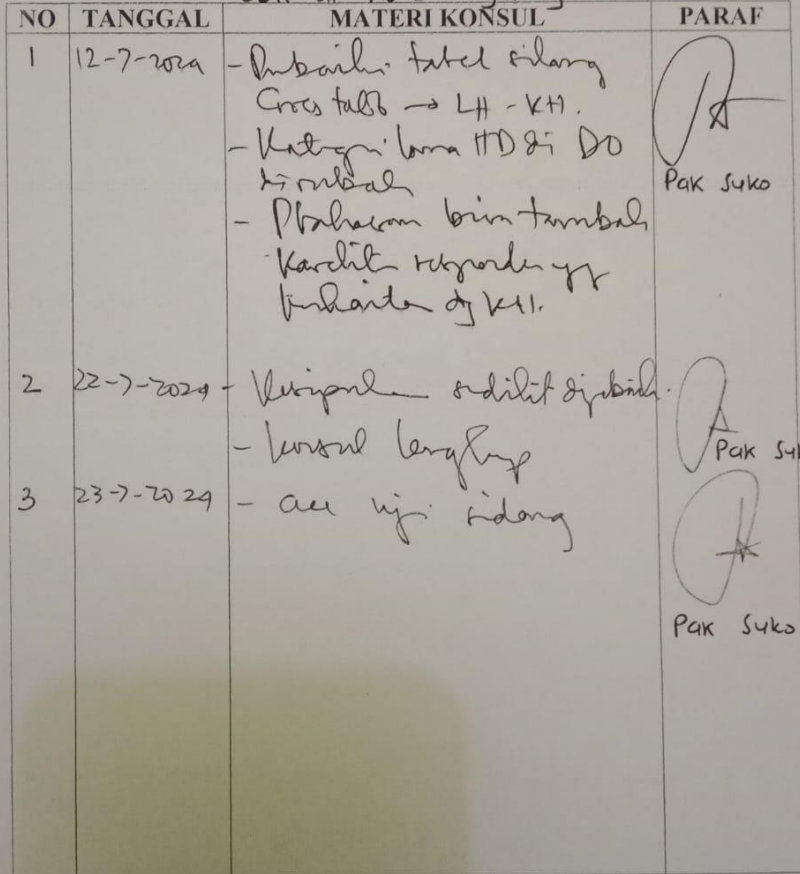 NO TANGGAL MATERI KONSUL PARAF
1 12-7-2024 - Perbaiki tabel silang
Cross tabb → LH - KH.
- Kategori lama HD di DO
dirubah
- Pbahasan bisa tambah
Karakt responden yg
berkaitan dg KH.
Pak Suko
2 22-7-2024 - Kesimpulan sedikit
- konsul lengkap
Pak Suk
3 23-7-2024 - acc uji sidang
Pak Suko